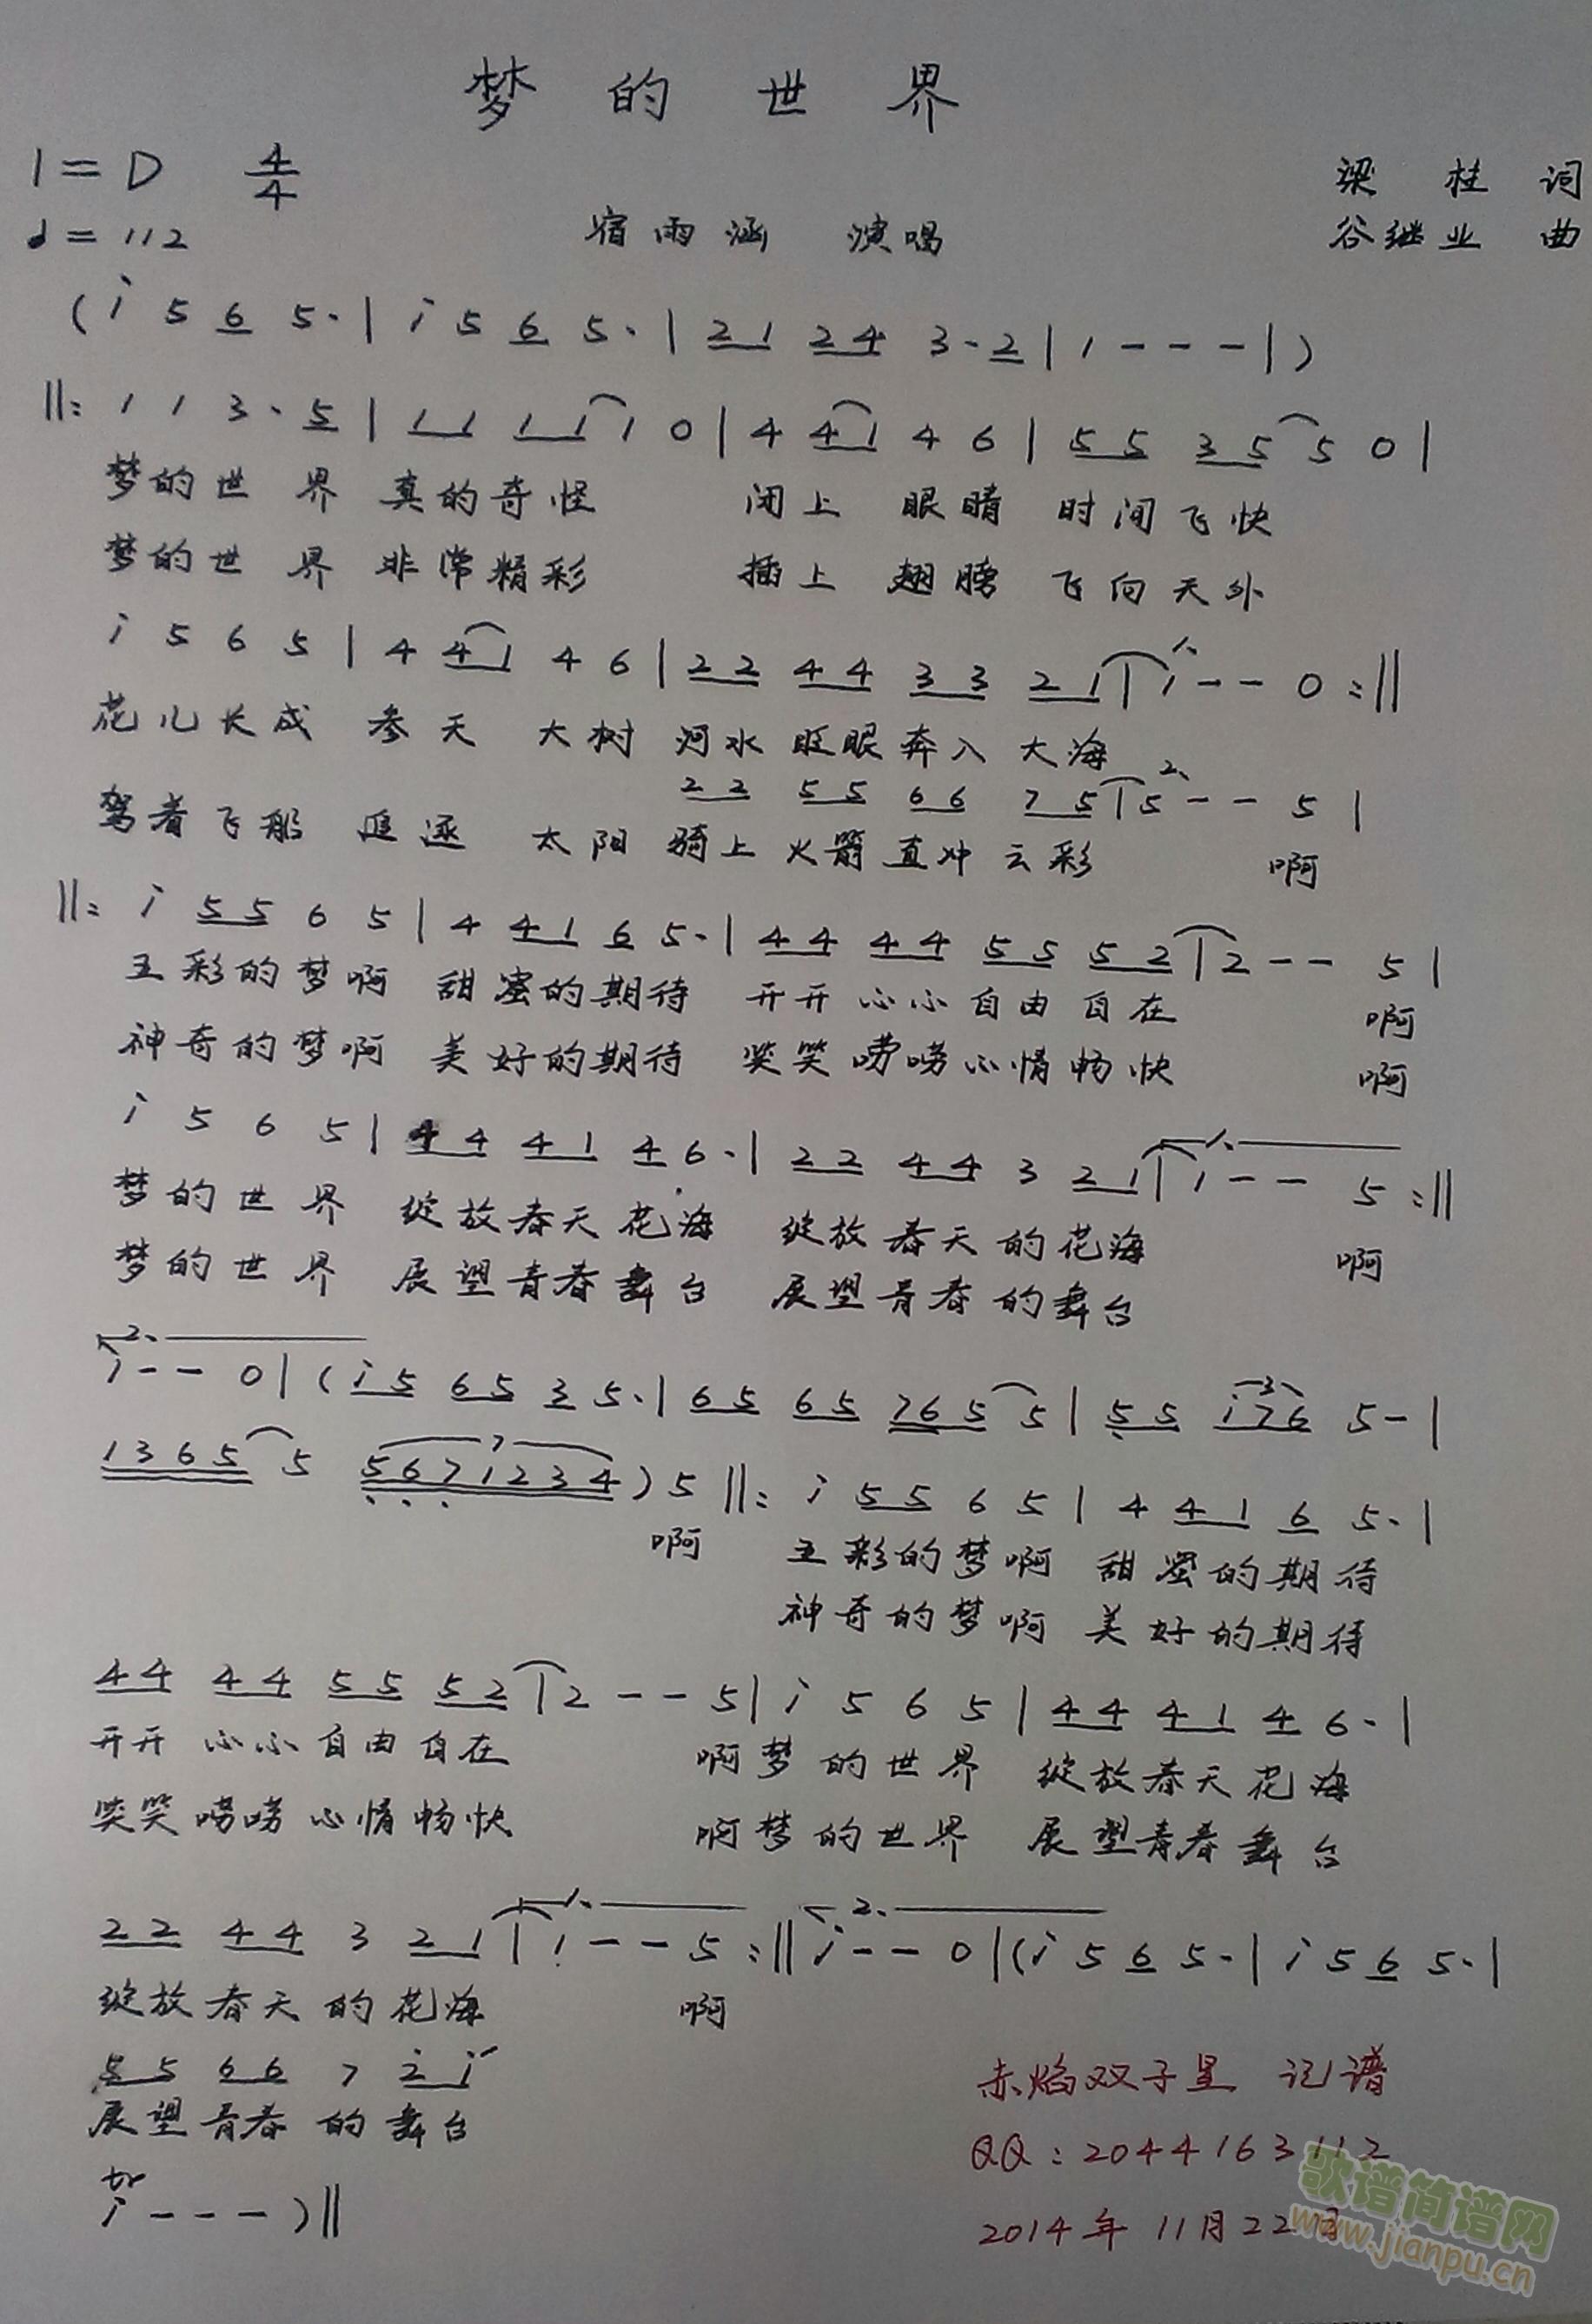 梦的世界
1=D 4/4
梁桂 词
♩=112
宿雨涵 演唱
谷继业 曲
(i 5 6 5·|i 5 6 5·|21 24 3·2|1---|)
‖:1 1 3·5|11 11 1 0|4 41 4 6|55 35 5 0|
梦的世界 真的奇怪 闭上 眼睛 时间飞快
梦的世界 非常精彩 插上 翅膀 飞向天外
i 5 6 5|4 41 4 6|22 44 33 21|1.1--0:‖
花儿长成 参天 大树 河水 眨眼奔入 大海
22 55 66 75|2.5--5|
驾着飞船 追逐 太阳 骑上火箭直冲云彩 啊
‖:i 55 6 5|4 41 6 5·|44 44 55 52|2--5|
五彩的梦啊 甜蜜的期待 开开心心自由自在 啊
神奇的梦啊 美好的期待 笑笑唠唠心情畅快 啊
i 5 6 5|44 41 4 6·|22 44 3 21|1.1--5:‖
梦的世界 绽放春天花海 绽放春天的花海 啊
梦的世界 展望青春舞台 展望青春的舞台
2.
i--0|(i5 65 3 5·|65 65 765 5|55 i76 5-|
1365 5 5671234)5‖:i 55 6 5|4 41 6 5·|
啊 五彩的梦啊 甜蜜的期待
神奇的梦啊 美好的期待
44 44 55 52|2--5|i 5 6 5|44 41 4 6·|
开开心心自由自在 啊梦的世界 绽放春天花海
笑笑唠唠心情畅快 啊梦的世界 展望青春舞台
22 44 3 21|1.1--5:‖2.i--0|(i 5 6 5·|i 5 6 5·|
绽放春天的花海 啊
55 66 7 2i
展望青春的舞台
tr
i---)‖
赤焰双子星 记谱
QQ:2044163112
2014年11月22日
歌谱简谱网
www.jianpu.cn